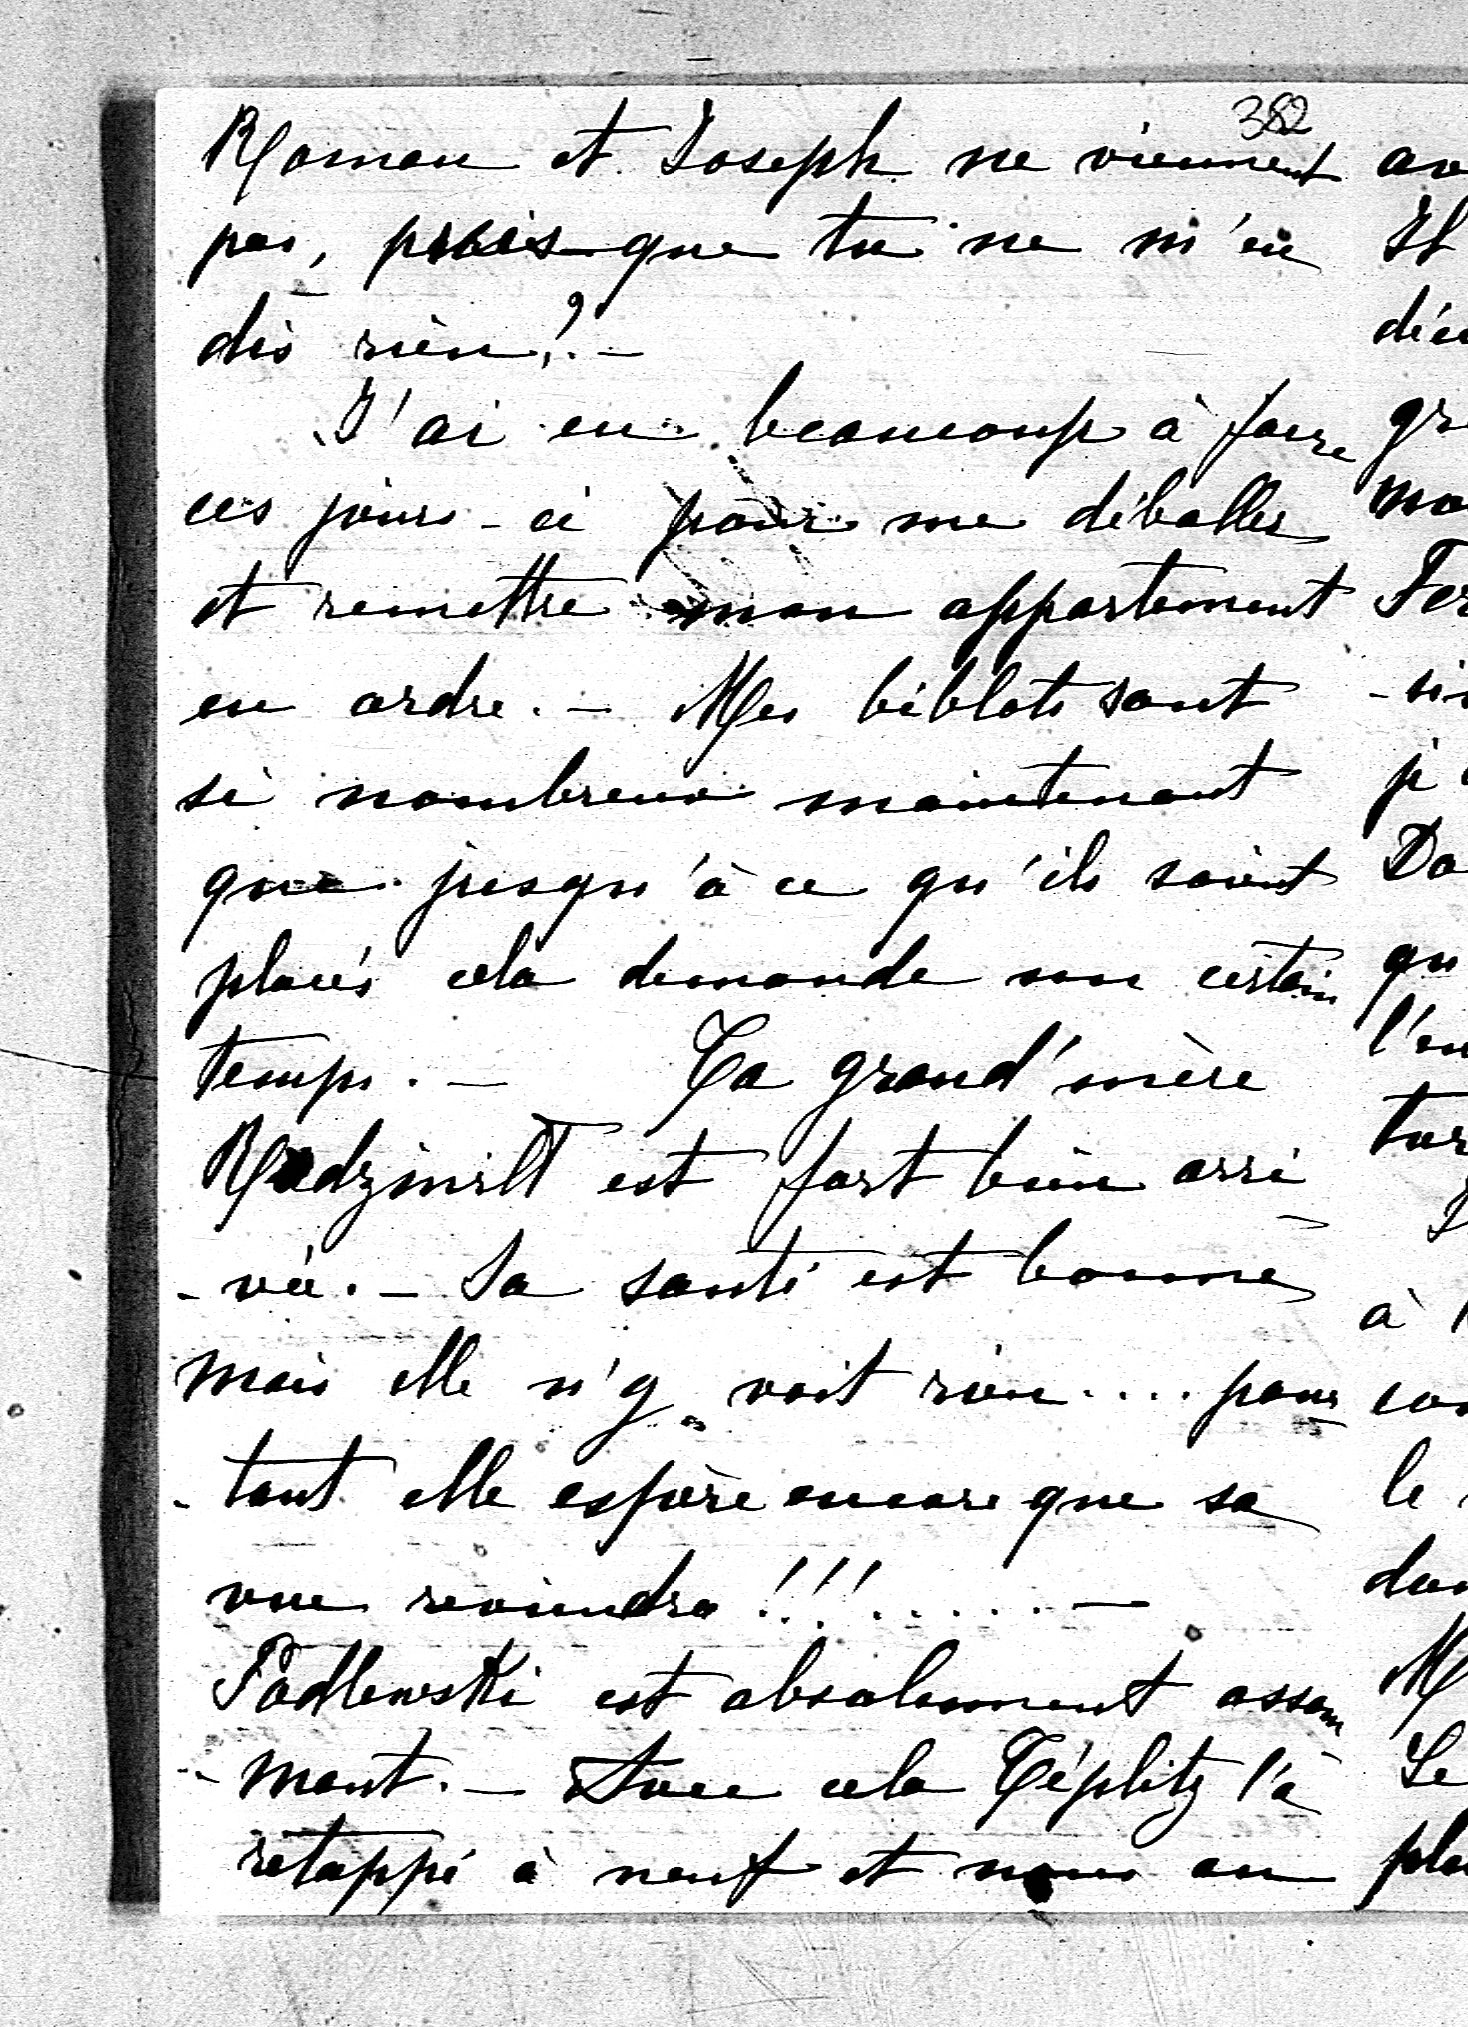 382
Roman et Joseph ne viennent
pas, puis-que tu ne m'en
dis rien?. —
J'ai eu beaucoup à faire
ces jours-ci pour me déballer
et remettre mon appartement
en ordre. — Mes biblots sont
si nombreux maintenant
que jusqu'à ce qu'ils soient
placés cela demande un certain
temps. — Ta grand'mère
Radziwill est fort bien arri
-vée. — Sa santé est bonne
mais elle n'y voit rien.... pour
-tant elle espère encore que sa
vue reviendra!!!...... —
Padlewski est absolument assom
-mant. — Avec cela Téplitz l'a
rétappé à neuf et nous en